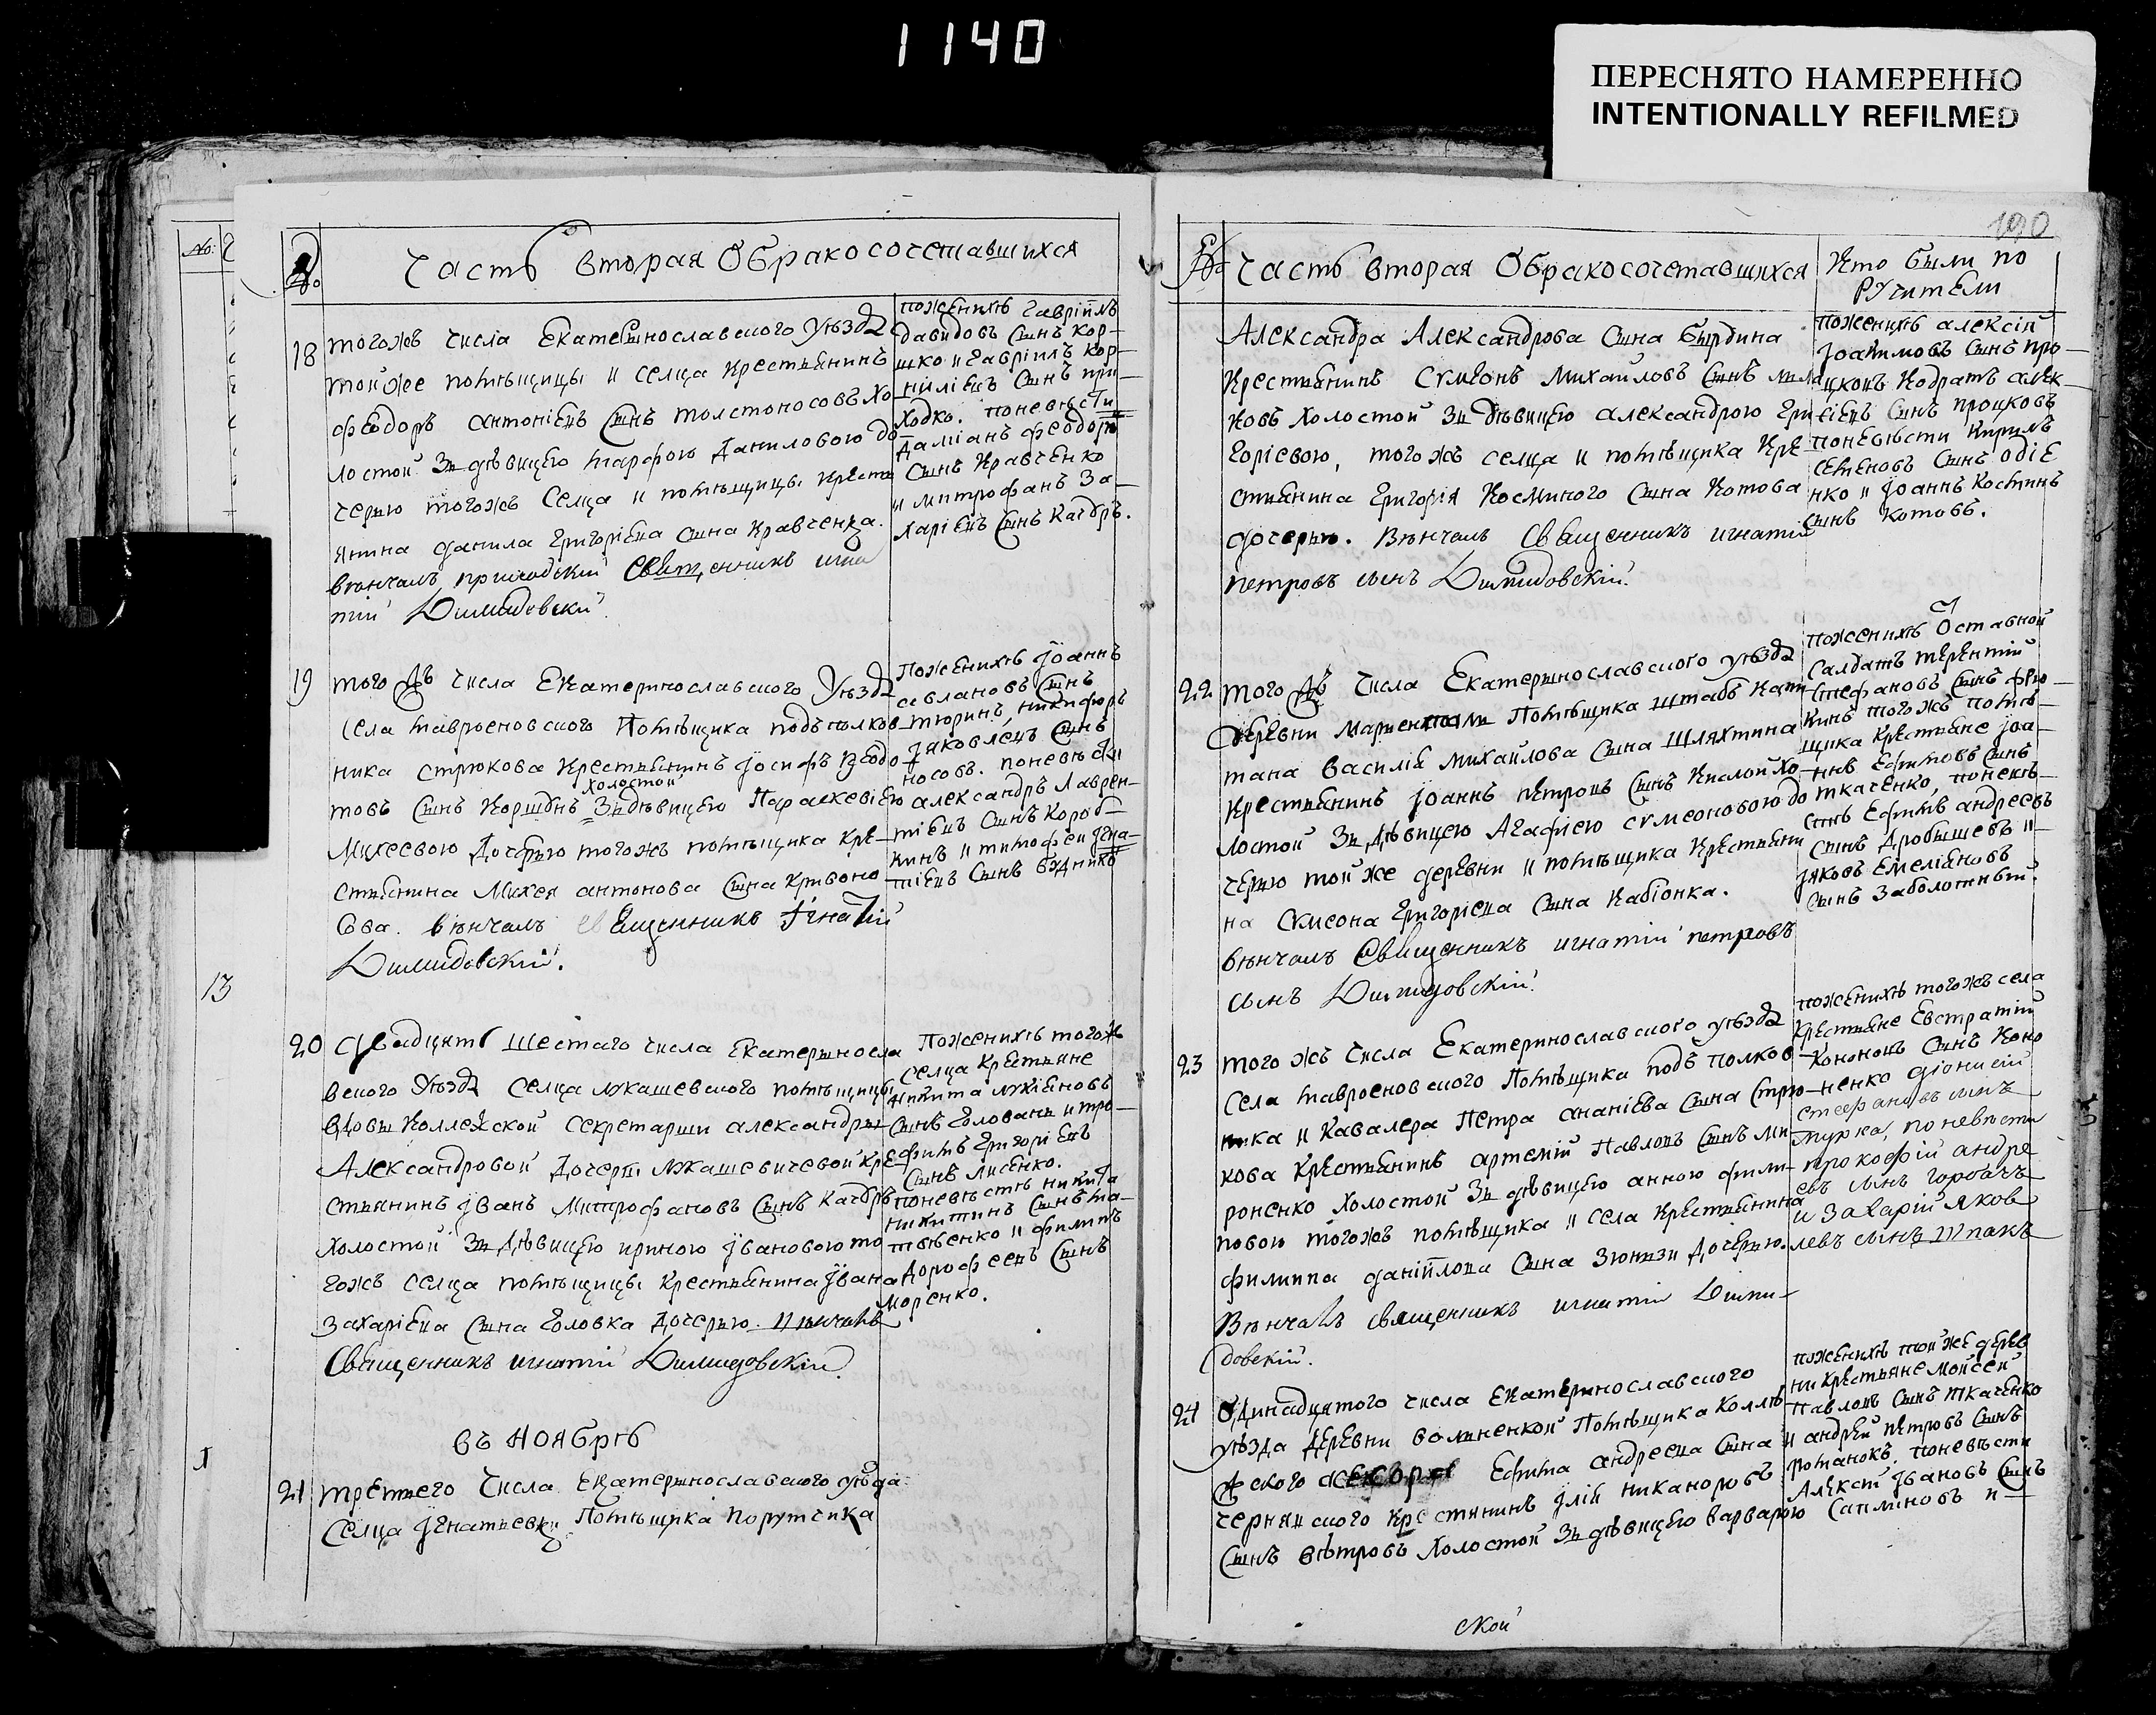 1140
ПЕРЕСНЯТО НАМЕРЕННО
INTENTIONALLY REFILMED
No:
13
1
Часть вторая О бракосочетавшихся
18
тогожъ числа Екатеринославского уѣзда
той же помѣщицы и селца крестьянинъ
феодоръ антоніевъ сынъ толстоносовъ хо
лостой за дѣвицею марфою Даниловою до
черью тогожъ селца и помѣщицы крестъ
янина данила григоріева сына кравченка.
вѣнчалъ приходскій священникъ игна
тій Дими́довскій
поженихѣ гавріилъ
давидовъ сынъ кор–
шко и гавріилъ кор–
ниліевъ сынъ при–
ходко. поневѣсти
даміанъ феодоро
сынъ кравченко
и митрофанъ за–
харіевъ сынъ качбръ.
19
того жъ числа Екатеринославского уѣзда
села мавроеновского помѣщика подъполков
ника стрюкова крестьянинъ іосифъ
холостой
товъ сынъ коршбнъ за дѣвицею Параскевіею
Михеевою дочерью тогожъ помѣщика кре–
стьянина Михея антонова сына кривоно–
сова. вѣнчалъ священникъ Игнатій
Димидовскій.
поженихѣ іоаннъ
севлановъ сынъ
тюринъ, никифоръ
іяковлевъ сынъ
носовъ. поневѣсти
александръ лаврен–
тіевъ сынъ короб–
кинъ и тимофей игна–
тіевъ сынъ будника
20
двадцять шестаго числа Екатериносла
вского уѣзда селца лукашевского помѣщицы
вдовы коллежской секретарши александры
Александровой дочери лукашевичевой кре
стьянинъ іванъ Митрофановъ сынъ качбръ
холостой за дѣвицею ириною івановою то
гожъ селца помѣщицы крестьянина івана
захаріева сына головка дочерью. вѣнчалъ
священникъ игнатій Димидовскій
поженихѣ тогожъ
селца крестьяне
никита лукіяновъ
сынъ голованъ и тро–
фимъ григоріевъ
сынъ лисенко.
поневѣстѣ никита
никитинъ сынъ ма–
твѣенко и филипъ
дорофеевъ сынъ
моренко.
въ ноябрѣ
21
третьего числа Екатеринославского уѣзда
селца ігнатьевки помѣщика порутчика
190
Часть вторая О бракосочетавшихся
Кто были по
ручители
Александра Александрова сына бырдина
крестьянинъ сумеонъ михайловъ сынъ мила
ковъ холостой за дѣвицею александрою гри
горіевою, того жъ селца и помѣщика кре–
стьянина григорія косминого сына котова
дочерью. вѣнчалъ священникъ игнатій
петровъ сынъ Димидовскій.
поженихѣ алексій
іоакимовъ сынъ про–
цковъ кодратъ алек–
сіевъ сынъ процковъ
поневѣсти кирилъ
семеновъ сынъ одіе
нко и іоаннъ костинъ
сынъ котовъ.
22
того жъ числа Екатеринославского уѣзда
деревни помѣщика штабъ капи
тана василія михайлова сына шляхтина
крестьянинъ іоаннъ петровъ сынъ кислой хо–
лостой за дѣвицею Агафіею сумеоновою до
черью той же деревни и помѣщика крестьяни
на сумеона григоріева сына кабіонка.
вѣнчалъ священникъ игнатій петровъ
сынъ Димидовскій.
поженихѣ оставной
салдатъ терентій
стефановъ сынъ
кинъ тогожъ помѣ–
щика крестьяне іоа–
ннъ ефимовъ сынъ
ткаченко, поневѣ–
стѣ ефимъ андреевъ
сынъ дробышевъ и
яковъ емеліановъ
сынъ заболотный.
23
того жъ числа Екатеринославского уѣзда
села мавроеновского помѣщика подъ полков–
ника и кавалера петра ананіева сына стрю–
кова крестьянинъ артемій павловъ сынъ ми–
роненко холостой за дѣвицею анною фили–
повою тогожъ помѣщика и села крестьянина
филиппа даніилова сына зюнызи дочерью.
вѣнчалъ священникъ игнатій Дими–
довскій.
поженихѣ тогожъ села
крестьяне евстратій
кононовъ сынъ коно
ненко діонисій
стефановъ сынъ
турка, поневѣсти
прокофій андре
евъ сынъ горбачъ
и захарій яков
левъ сынъ шпакъ
24
одинадцятого числа Екатеринославского
уѣзда деревни волниненкой помѣщика коллѣ
жского Ефима андреева сына
чернявского крестянинъ ілія никаноровъ
сынъ вѣтровъ холостой за дѣвицею варварою
поженихѣ той же дерев
ни крестьяне мойсей
павловъ сынъ ткаченко
и андрей петровъ сынъ
романокъ. поневѣсти
алексій івановъ сынъ
саплиновъ и–
ской